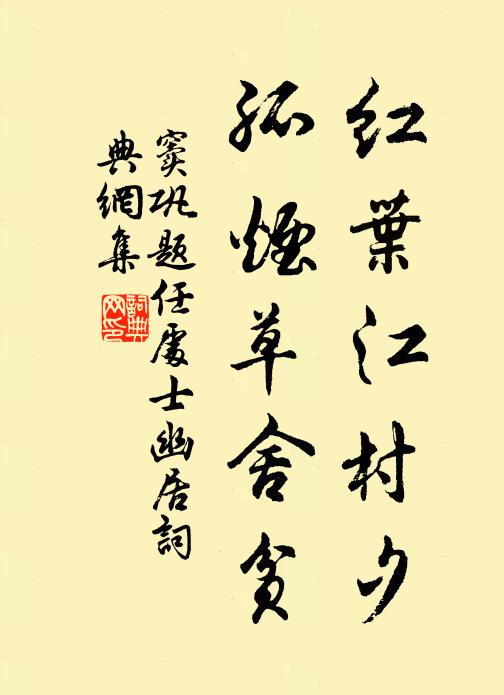 红葉江村夕
孤煙草舍貧
窦巩题任處士幽居詞
典網集
詞典
网印